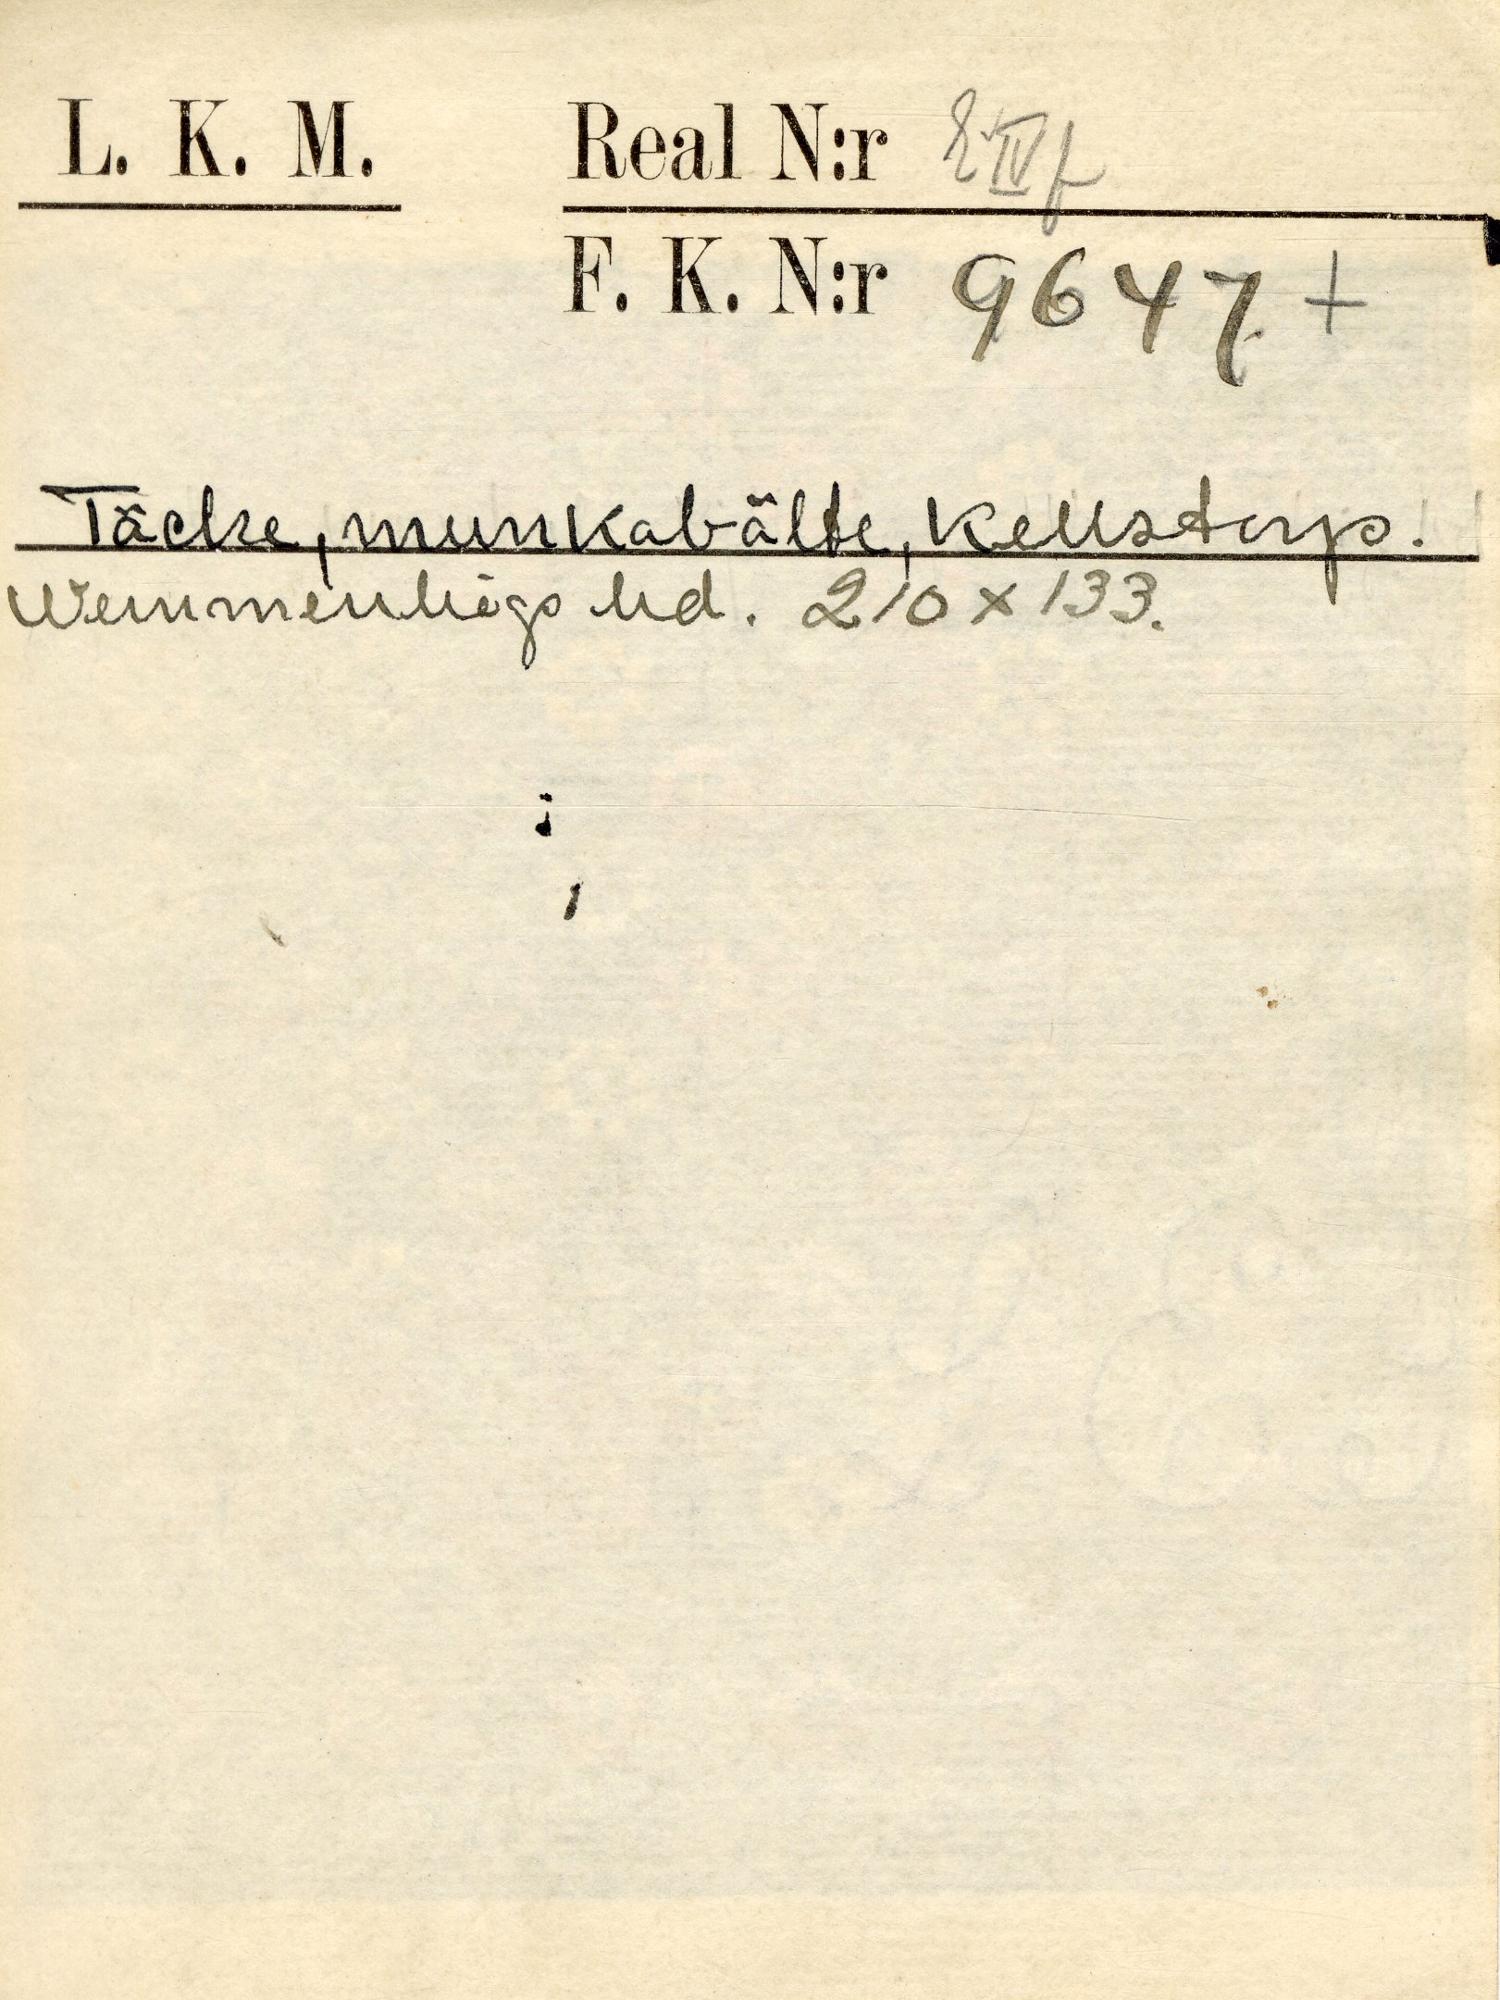 L. K. M. Real N:r E IV f
F. K. N:r 9647 +
Täcke, munkabälte, Kellstorp.
Wemmenhögs hd. 210 x 133.